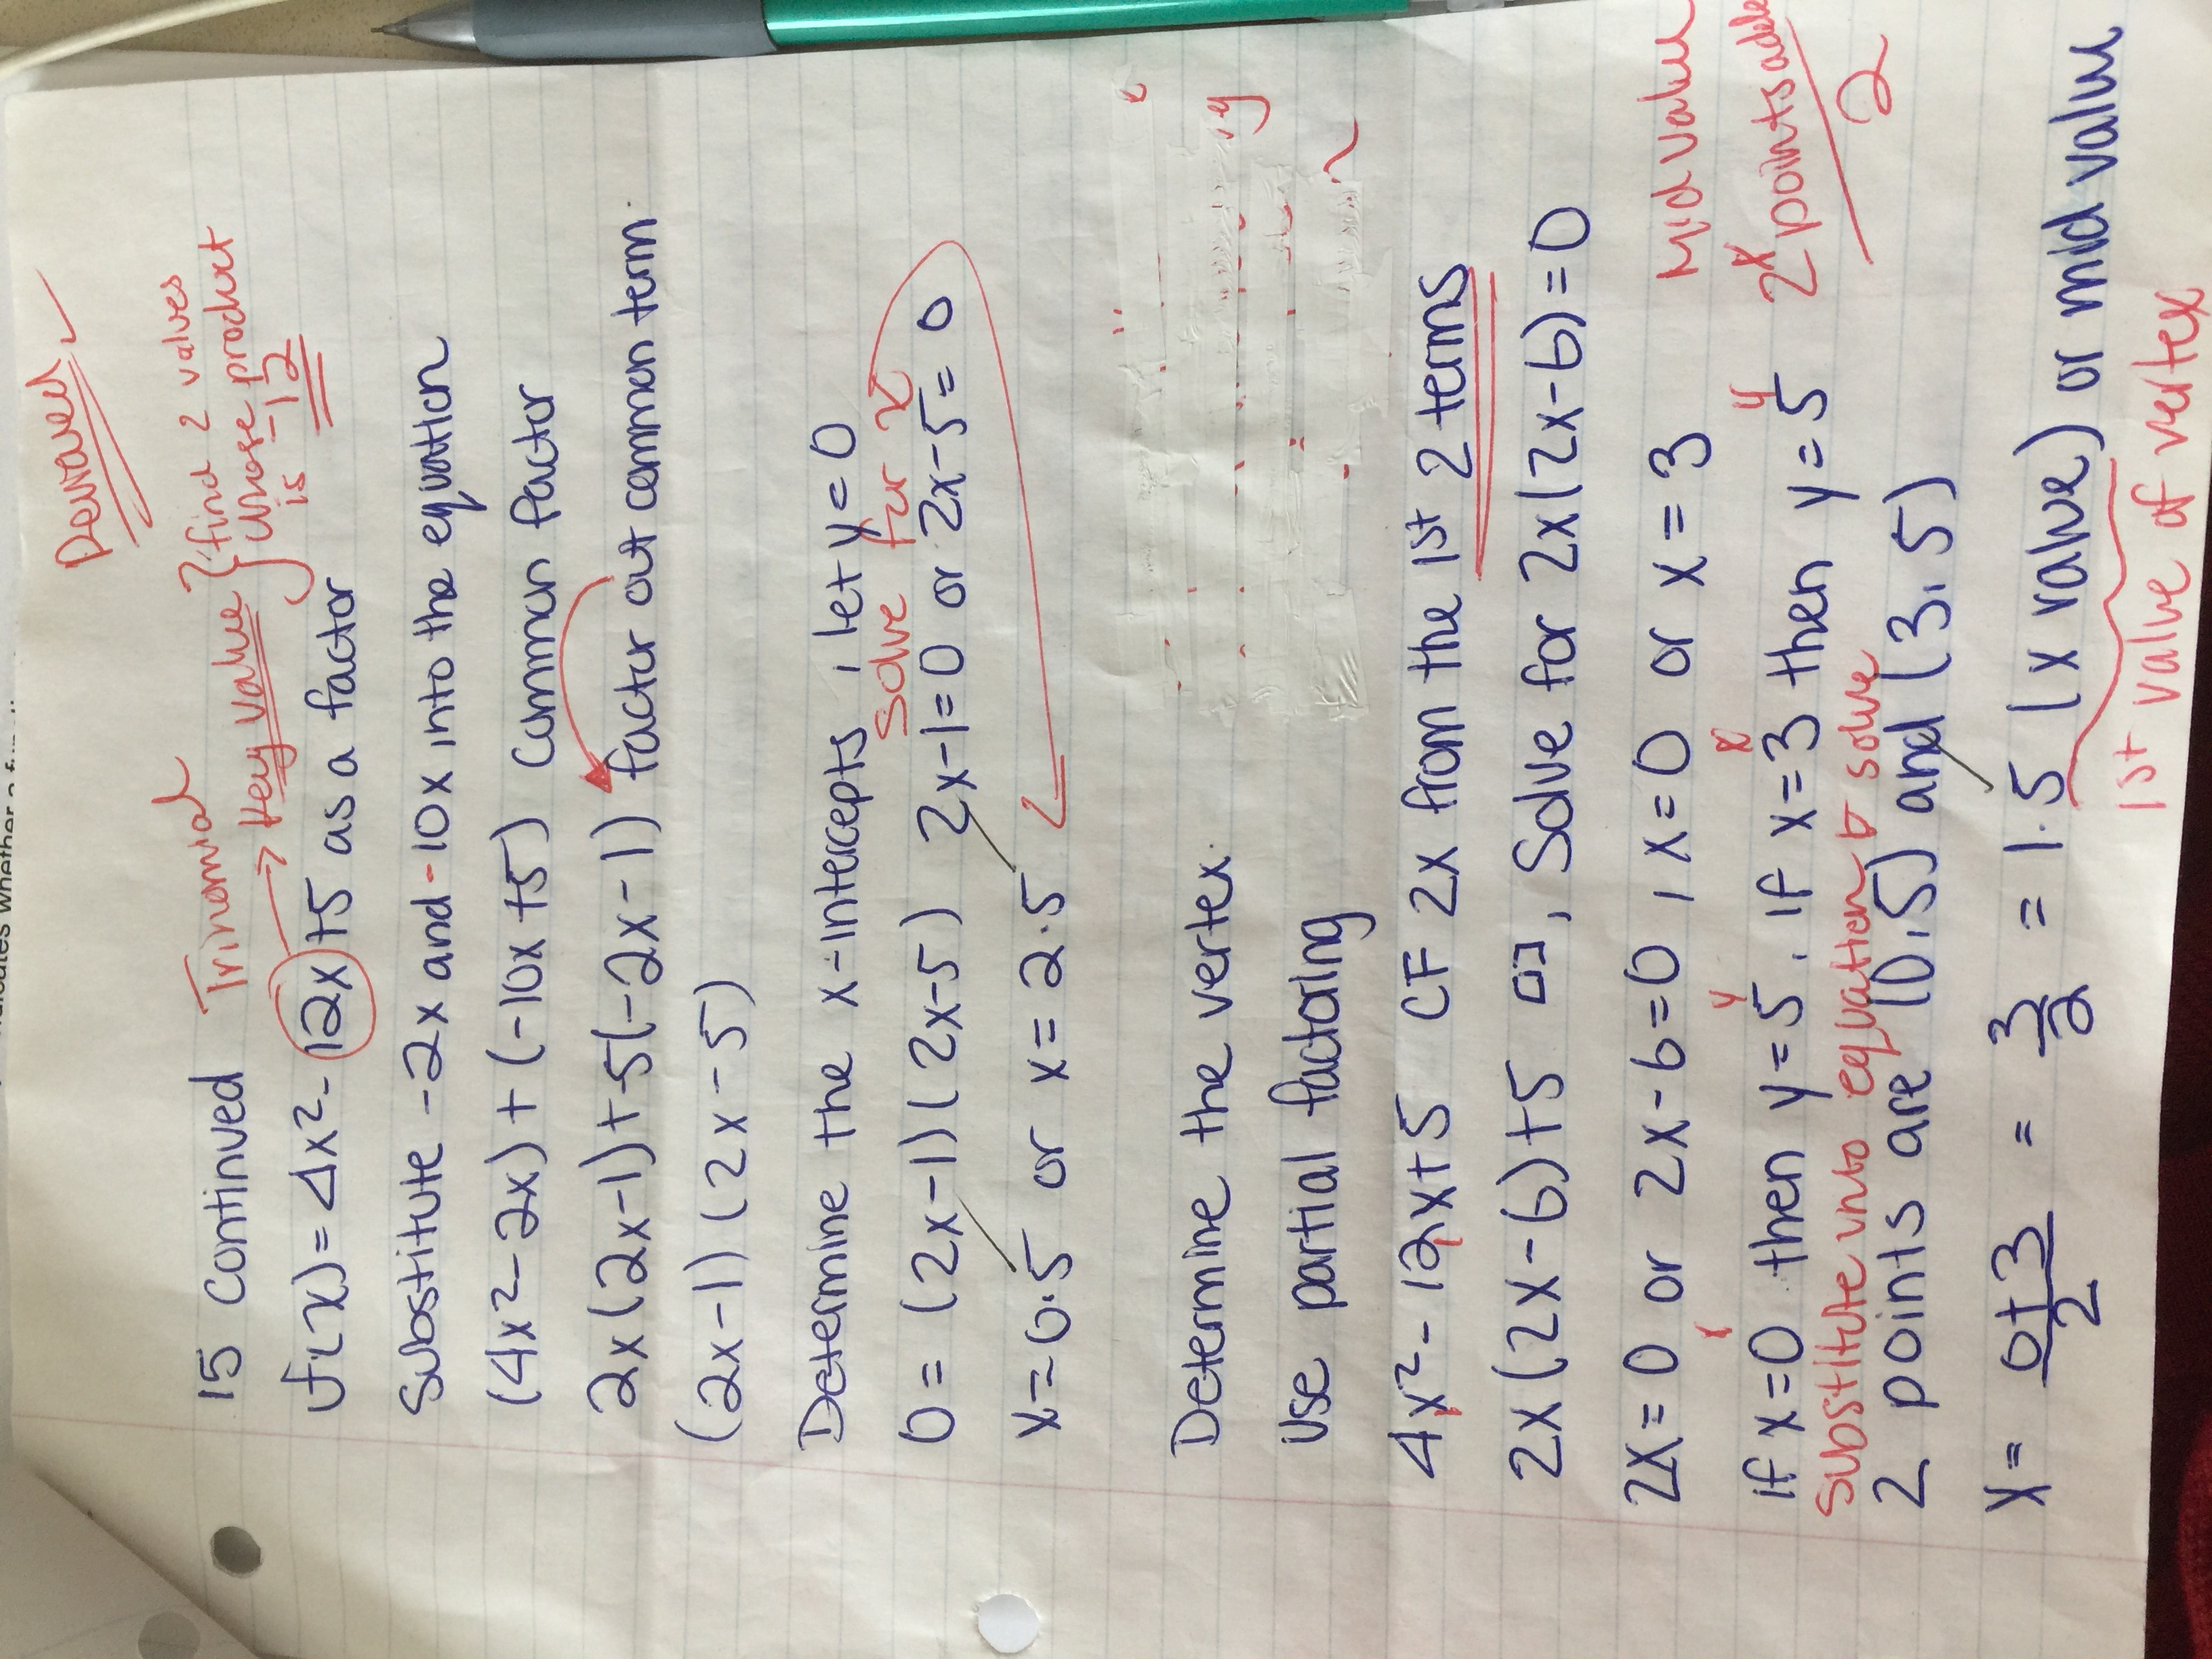 15 continued Trinomial
Key value { find 2 values
whose product
is -12
f(x) = 4x² - 12x + 5 as a factor
Substitute -2x and -10x into the equation
(4x² - 2x) + (-10x + 5) common factor
2x(2x-1) + -5(-2x-1) factor out common term.
(2x-1)(2x-5)
Determine the x-intercepts, let y=0
solve for x
0 = (2x-1)(2x-5) 2x-1=0 or 2x-5=0
x=0.5 or x=2.5
Determine the vertex.
Use partial factoring
4x² - 12x + 5 CF 2x from the 1st 2 terms
2x(2x-6)+5 , Solve for 2x(2x-6)=0
2x=0 or 2x-6=0, x=0 or x=3
Mid value
x y x y
if x=0 then y=5. if x=3 then y=5
2 x points
2
substitute into equation & solve
2 points are (0,5) and (3,5)
x = 0+3/2 = 3/2 = 1.5 (x value) or mid value
1st value of vertex